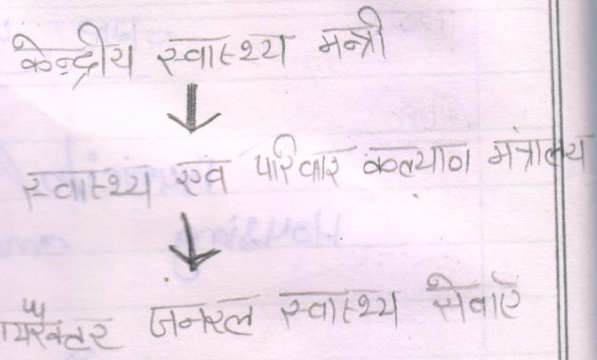 केन्द्रीय स्वास्थ्य मन्त्री
स्वास्थ्य एव परिवार कल्यान मंत्रालय
जनरल स्वास्थ्य सेवाएं